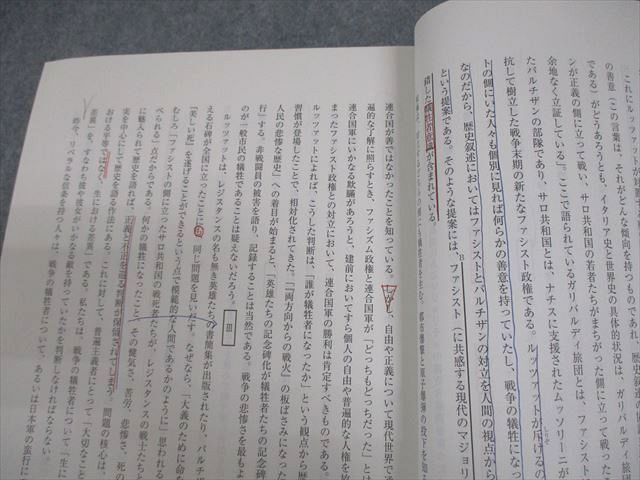 の善意（この言葉は、それがどんな傾向を持つものであれ、歴史
である」がどうあろうとも、イタリア史と世界史の具体的状況は、ガリバルデ
ィ
ンが正義の側に立って戦い、サロ共和国の若者たちがまちがった側に立って戦った
余地なく立証している」。ここで語られているガリバルディ旅団とは、ファシスト
たパルチザンの部隊であり、サロ共和国とは、ナチスに支援されたムッソリーニが
抗して樹立した戦争末期の新たなファシスト政権である。ルッツァットが斥けるの
トの側にいた人々も個別に見れば何らかの善意を持っていたし、戦争の犠牲になっ
なのだから、歴史叙述においてはファシストとパルチザンの対立を人間の視点から
という提案である。そのような提案には、ファシスト（に共感する現代のマジョリ
B
積した犠牲者意識が含まれている。
連合国が善ではなかったことを知っている。しかし、自由や正義について現代世界で
遍的な了解に照らすとき、ファシズム政権と連合国軍が「どっちもどっちだった」とは
連合国軍にいかなる欺瞞があろうと、建前においてすら個人の自由や普遍的な人権を
まったファシスト政権との対立において、連合国軍の勝利は肯定すべきものである。
ルッツァットによれば、こうした判断は、「誰が犠牲者になったか」という観点から歴
習慣が登場したことで、相対化されてきた。「「両方向からの戦火」の板ばさみになった
人民の悲惨な歴史」への着目が始まると、「英雄たちの記念碑化が犠牲者たちの記念碑
行」する。非戦闘員の被害を語り、記録することは当然である。戦争の悲惨さを最もよ
のが一般市民の犠牲であることは疑えないだろう。
Ⅲ
ルッツァットは、レジスタンスの名も無き英雄たちの書簡集が出版されたり、パルチザ
える石碑が全国に立ったことにも、同じ問題を見いだす。なぜなら、「大義のために命
「美しい死」を遂げることができるという点で模範的な人間であるかのように」思われる
むしろ「ファシストの側に立ったサロ共和国の戦死者たちが、レジスタンスの戦士たちと
べられる」点だからである。何かの犠牲になったこと、その健気さ、苦労、悲惨さ、死の
に魅入られて歴史を語れば、正義と不正を巡る判断が保留されてしまう。問題の核心は、
実を中心にして歴史を語る作法にある。これに対して、普遍主義者にとって「大切なこと
おける平等ではなく、生における差異」である。私たちは、戦争の犠牲者について「生に
差異」を、すなわち彼や彼女がいかなる敵を持っていたかを判断しなければならない。
昨今、リベラルな信条を持つ人々は、戦争の犠牲者について、あるいは日本軍の蛮行に